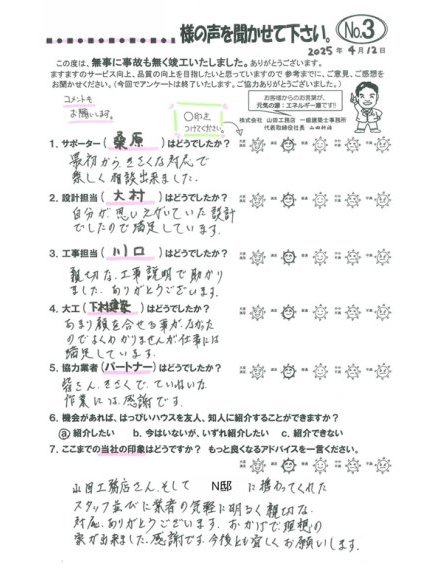 様の声を聞かせて下さい。 No.3
2025年4月12日
この度は、無事に事故も無く竣工いたしました。ありがとうございます。
ますますのサービス向上、品質の向上を目指したいと思っていますので 参考までに、ご意見、ご感想を
お聞かせください。(今回でアンケートは終了いたします。ご協力ありがとうございました。)
コメントも
お願いします。
〇印を
つけてください。
お客様からのお言葉が、
元気の源:エネルギー源です!!
株式会社 山田工務店 一級建築士事務所
代表取締役社長
1. サポーター(桑原)はどうでしたか?
最初から、きさくな対応で
楽しく相談出来ました。
2. 設計担当(大村)はどうでしたか?
自分が思いえがいていた設計
でしたので満足しています。
3. 工事担当(川口)はどうでしたか?
親切な工事説明で助かり
ました。ありがとうございます。
4. 大工(下村)はどうでしたか?
あまり顔を合せる事がなかった
のでよくわかりませんが仕事には
満足しています。
5. 協力業者(パートナー)はどうでしたか?
皆さん、きさくで、ていねいな
作業には、感謝です。
6. 機会があれば、はっぴいハウスを友人、知人に紹介することができますか?
a 紹介したい b. 今はいないが、いずれ紹介したい c. 紹介できない
7. ここまでの当社の印象はどうですか? もっと良くなるアドバイスを一言ください。
山田工務店さん、そして N邸 に携わってくれた
スタッフ並びに業者の気軽に明るく親切な
対応、ありがとうございます。おかげで理想の
家が出来ました。感謝です。今後とも宜しくお願いします。